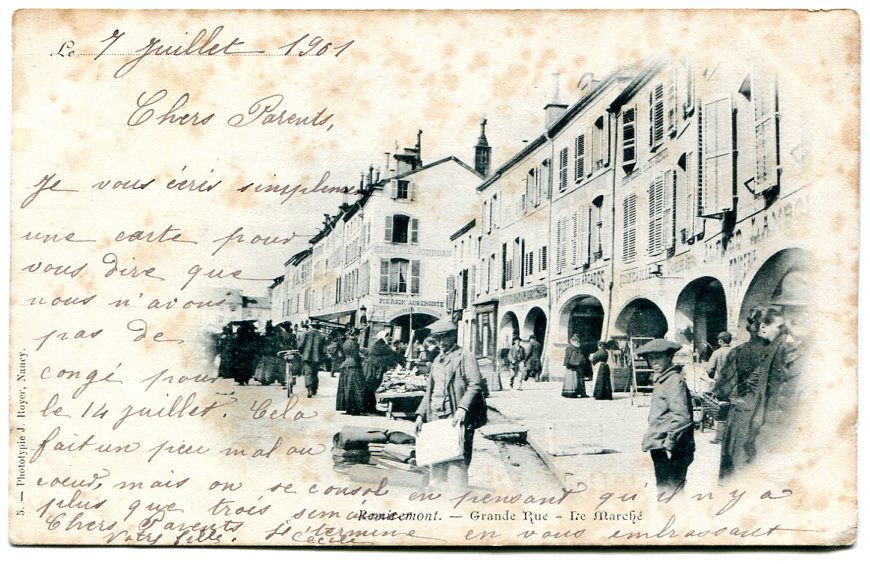 Le 7 Juillet 1901
Chers Parents,
Je vous écris simplem
une carte pour
vous dire que
nous n'avons
pas de
congé pour
le 14 juillet. Cela
fait un peu mal au
coeur, mais on se consol en pensant qu'il n'y a
plus que trois semaines
Chers Parents Je termine en vous embrassant
Votre fille. Cécile
PIERSON AUBERGISTE
JOURDAN
DES ARCADES
Remiremont. — Grande Rue - Le Marché
5. — Phototypie J. Royer, Nancy.